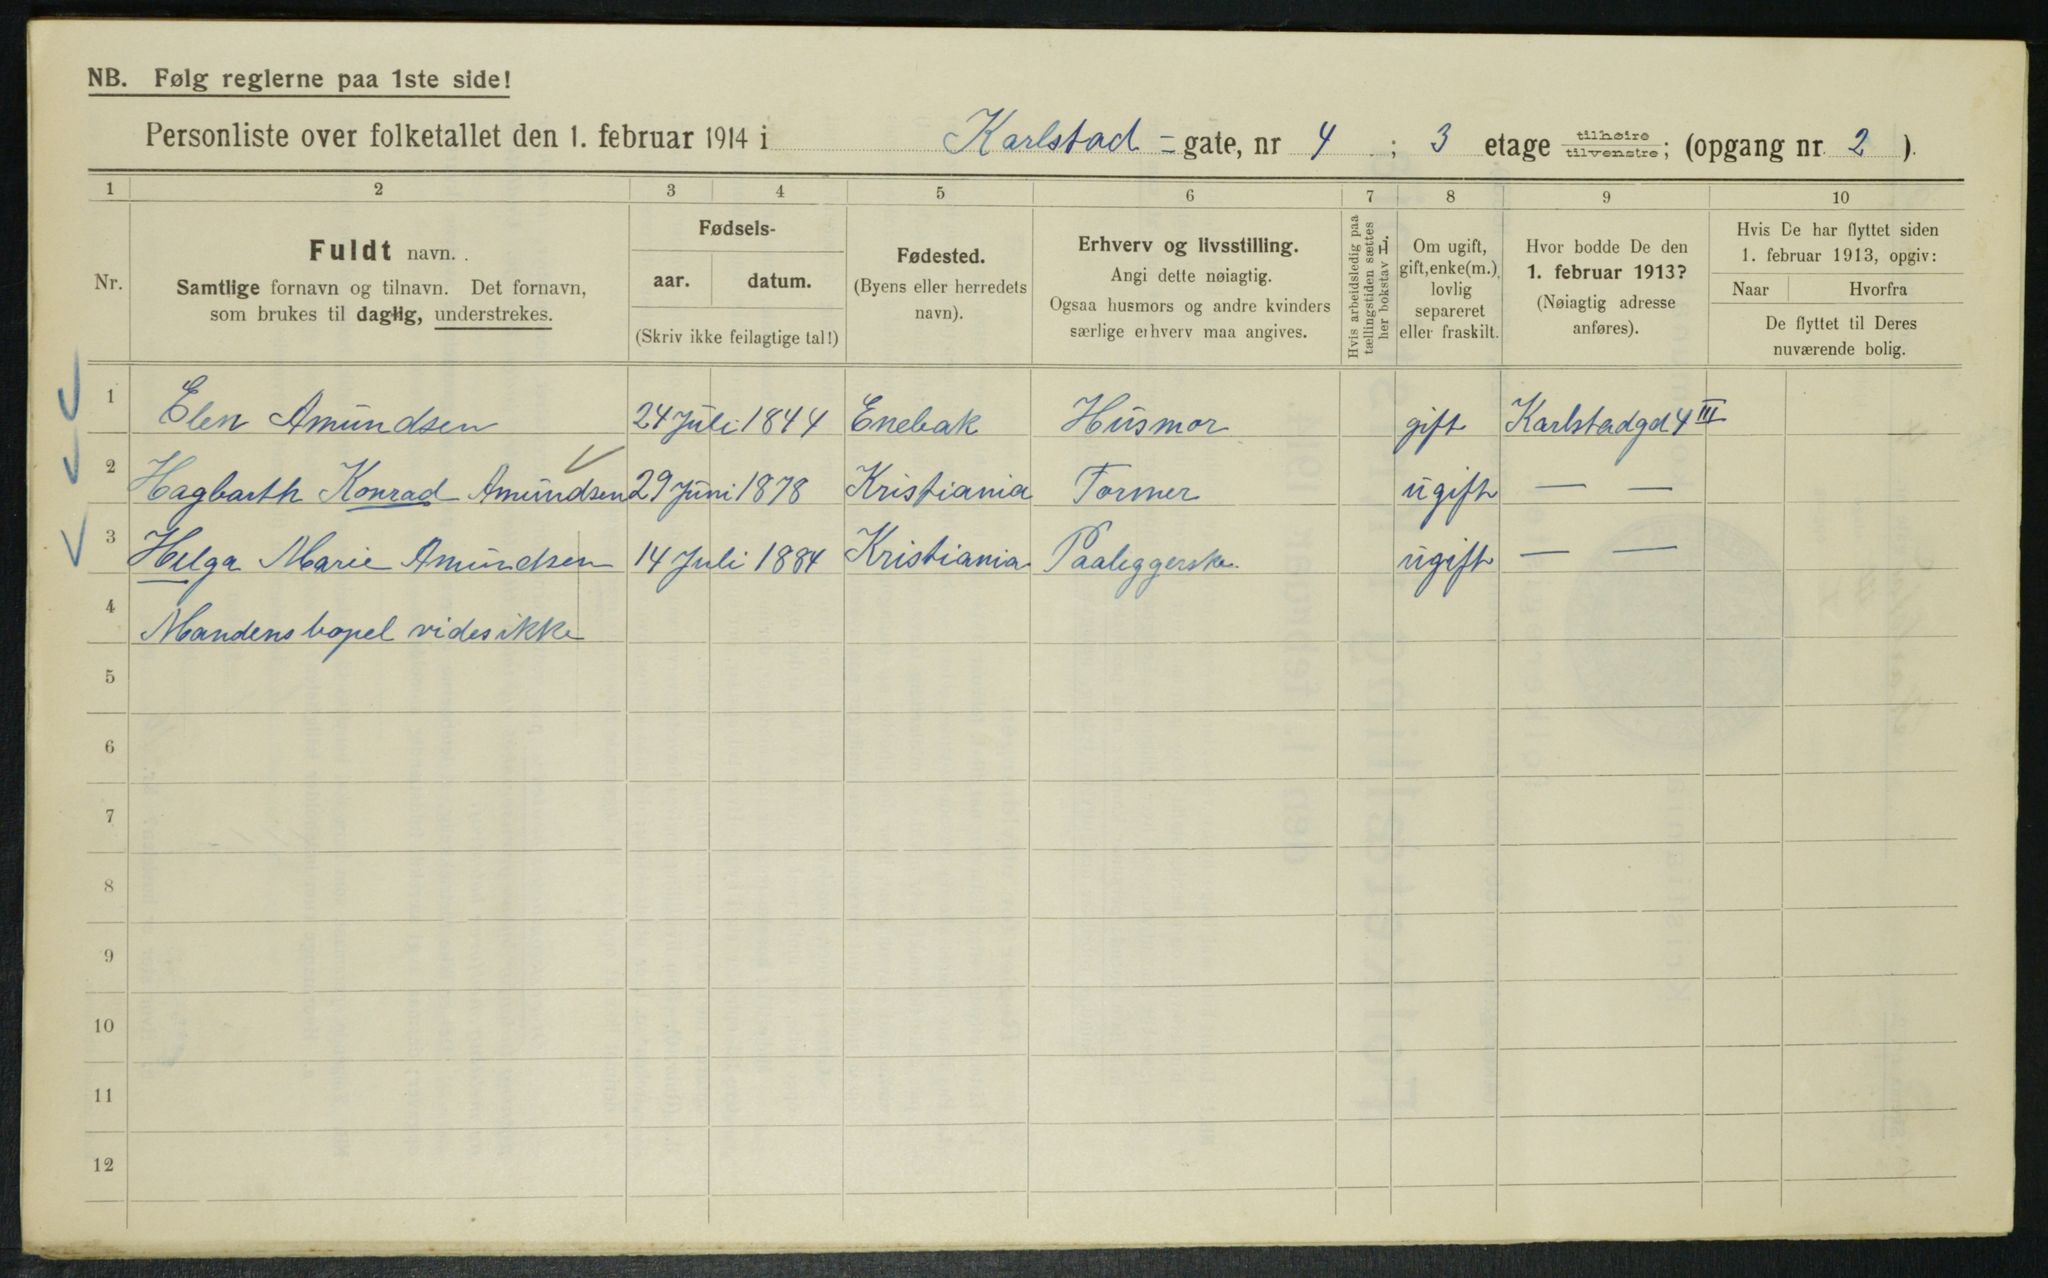 NB. Følg reglerne paa 1ste side!
Personliste over folketallet den 1. februar 1914 i Karlstad = gate, nr 4 ; 3 etage tilhøire / tilvenstre; (opgang nr. 2 ).
1 2 3 4 5 6 7 8 9 10
Nr.
Fuldt navn.
Samtlige fornavn og tilnavn. Det fornavn,
som brukes til daglig, understrekes.
Fødsels-
aar. datum.
(Skriv ikke feilagtige tal!)
Fødested.
(Byens eller herredets
navn).
Erhverv og livsstilling.
Angi dette nøiagtig.
Ogsaa husmors og andre kvinders
særlige erhverv maa angives.
Hvis arbeidsledig paa
tællingstiden sættes
her bokstav L.
Om ugift,
gift, enke(m.),
lovlig
separeret
eller fraskilt.
Hvor bodde De den
1. februar 1913?
(Nøiagtig adresse
anføres).
Hvis De har flyttet siden
1. februar 1913, opgiv:
Naar Hvorfra
De flyttet til Deres
nuværende bolig.
1 Elen Amundsen 24 Juli 1844 Enebak Husmor gift Karlstadgd 4 III
2 Hagbarth Konrad Amundsen 29 Juni 1878 Kristiania Former ugift — —
3 Helga Marie Amundsen 14 Juli 1884 Kristiania Paaleggerske ugift — —
4 Mandens bopel vides ikke
5
6
7
8
9
10
11
12